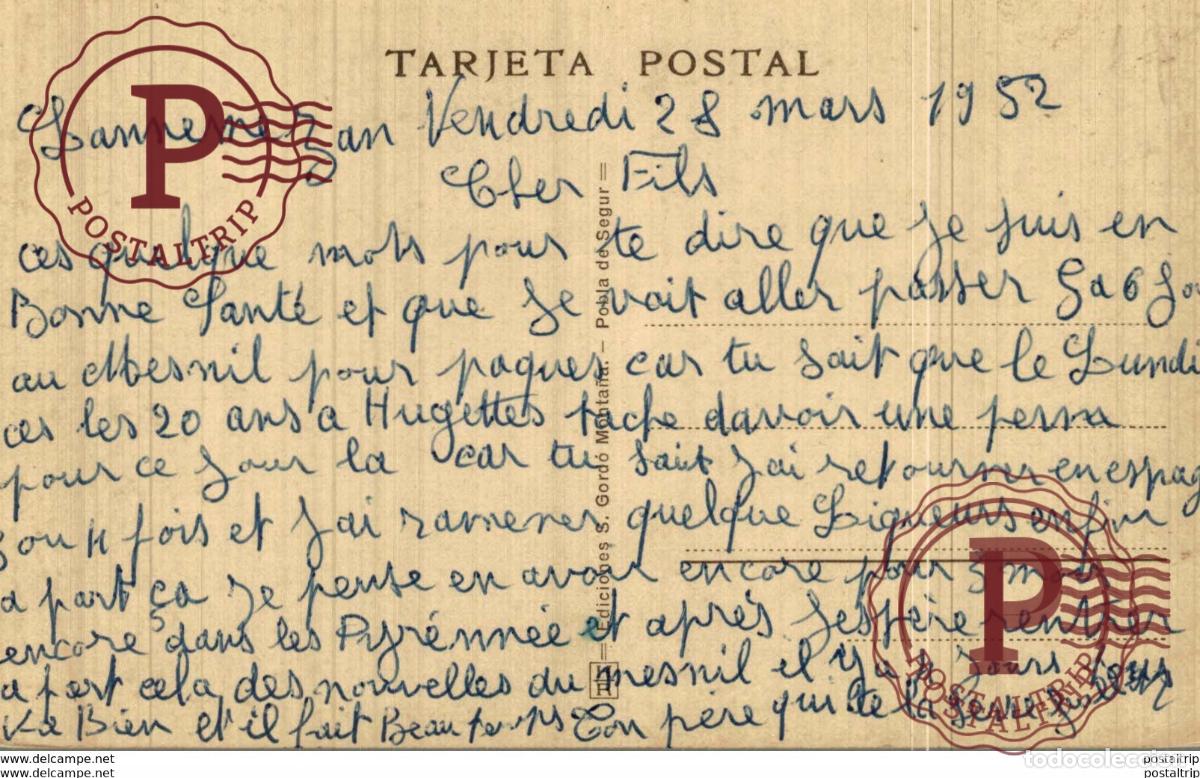 TARJETA POSTAL
Lannemezan Vendredi 28 mars 1952
Cher Fils
ces quelque mots pour te dire que Je suis en
Bonne Santé et que Je vait aller passer 5 a 6 Jou
au Mesnil pour paques car tu sait que le Lundi
ces les 20 ans a Hugettes tache davoir une perm
pour ce Jour la car tu sait Jai retourner en espag
3 ou 4 fois et Jai ramener quelque Liqueurs enfin
a part ça Je pense en avoir encore pour 3 mois
encore dans les Pyrénnée et après Jespère rentrer
a part cela des nouvelles du mesnil il y a Jours tous
va Bien et il fait Beau temps Ton père qui te la
Ediciones S. Gordó Montaña. – Pobla de Segur
P
POSTALTRIP
P
POSTALTRIP
todocoleccion
www.delcampe.net
postaltrip
www.delcampe.net
postaltrip